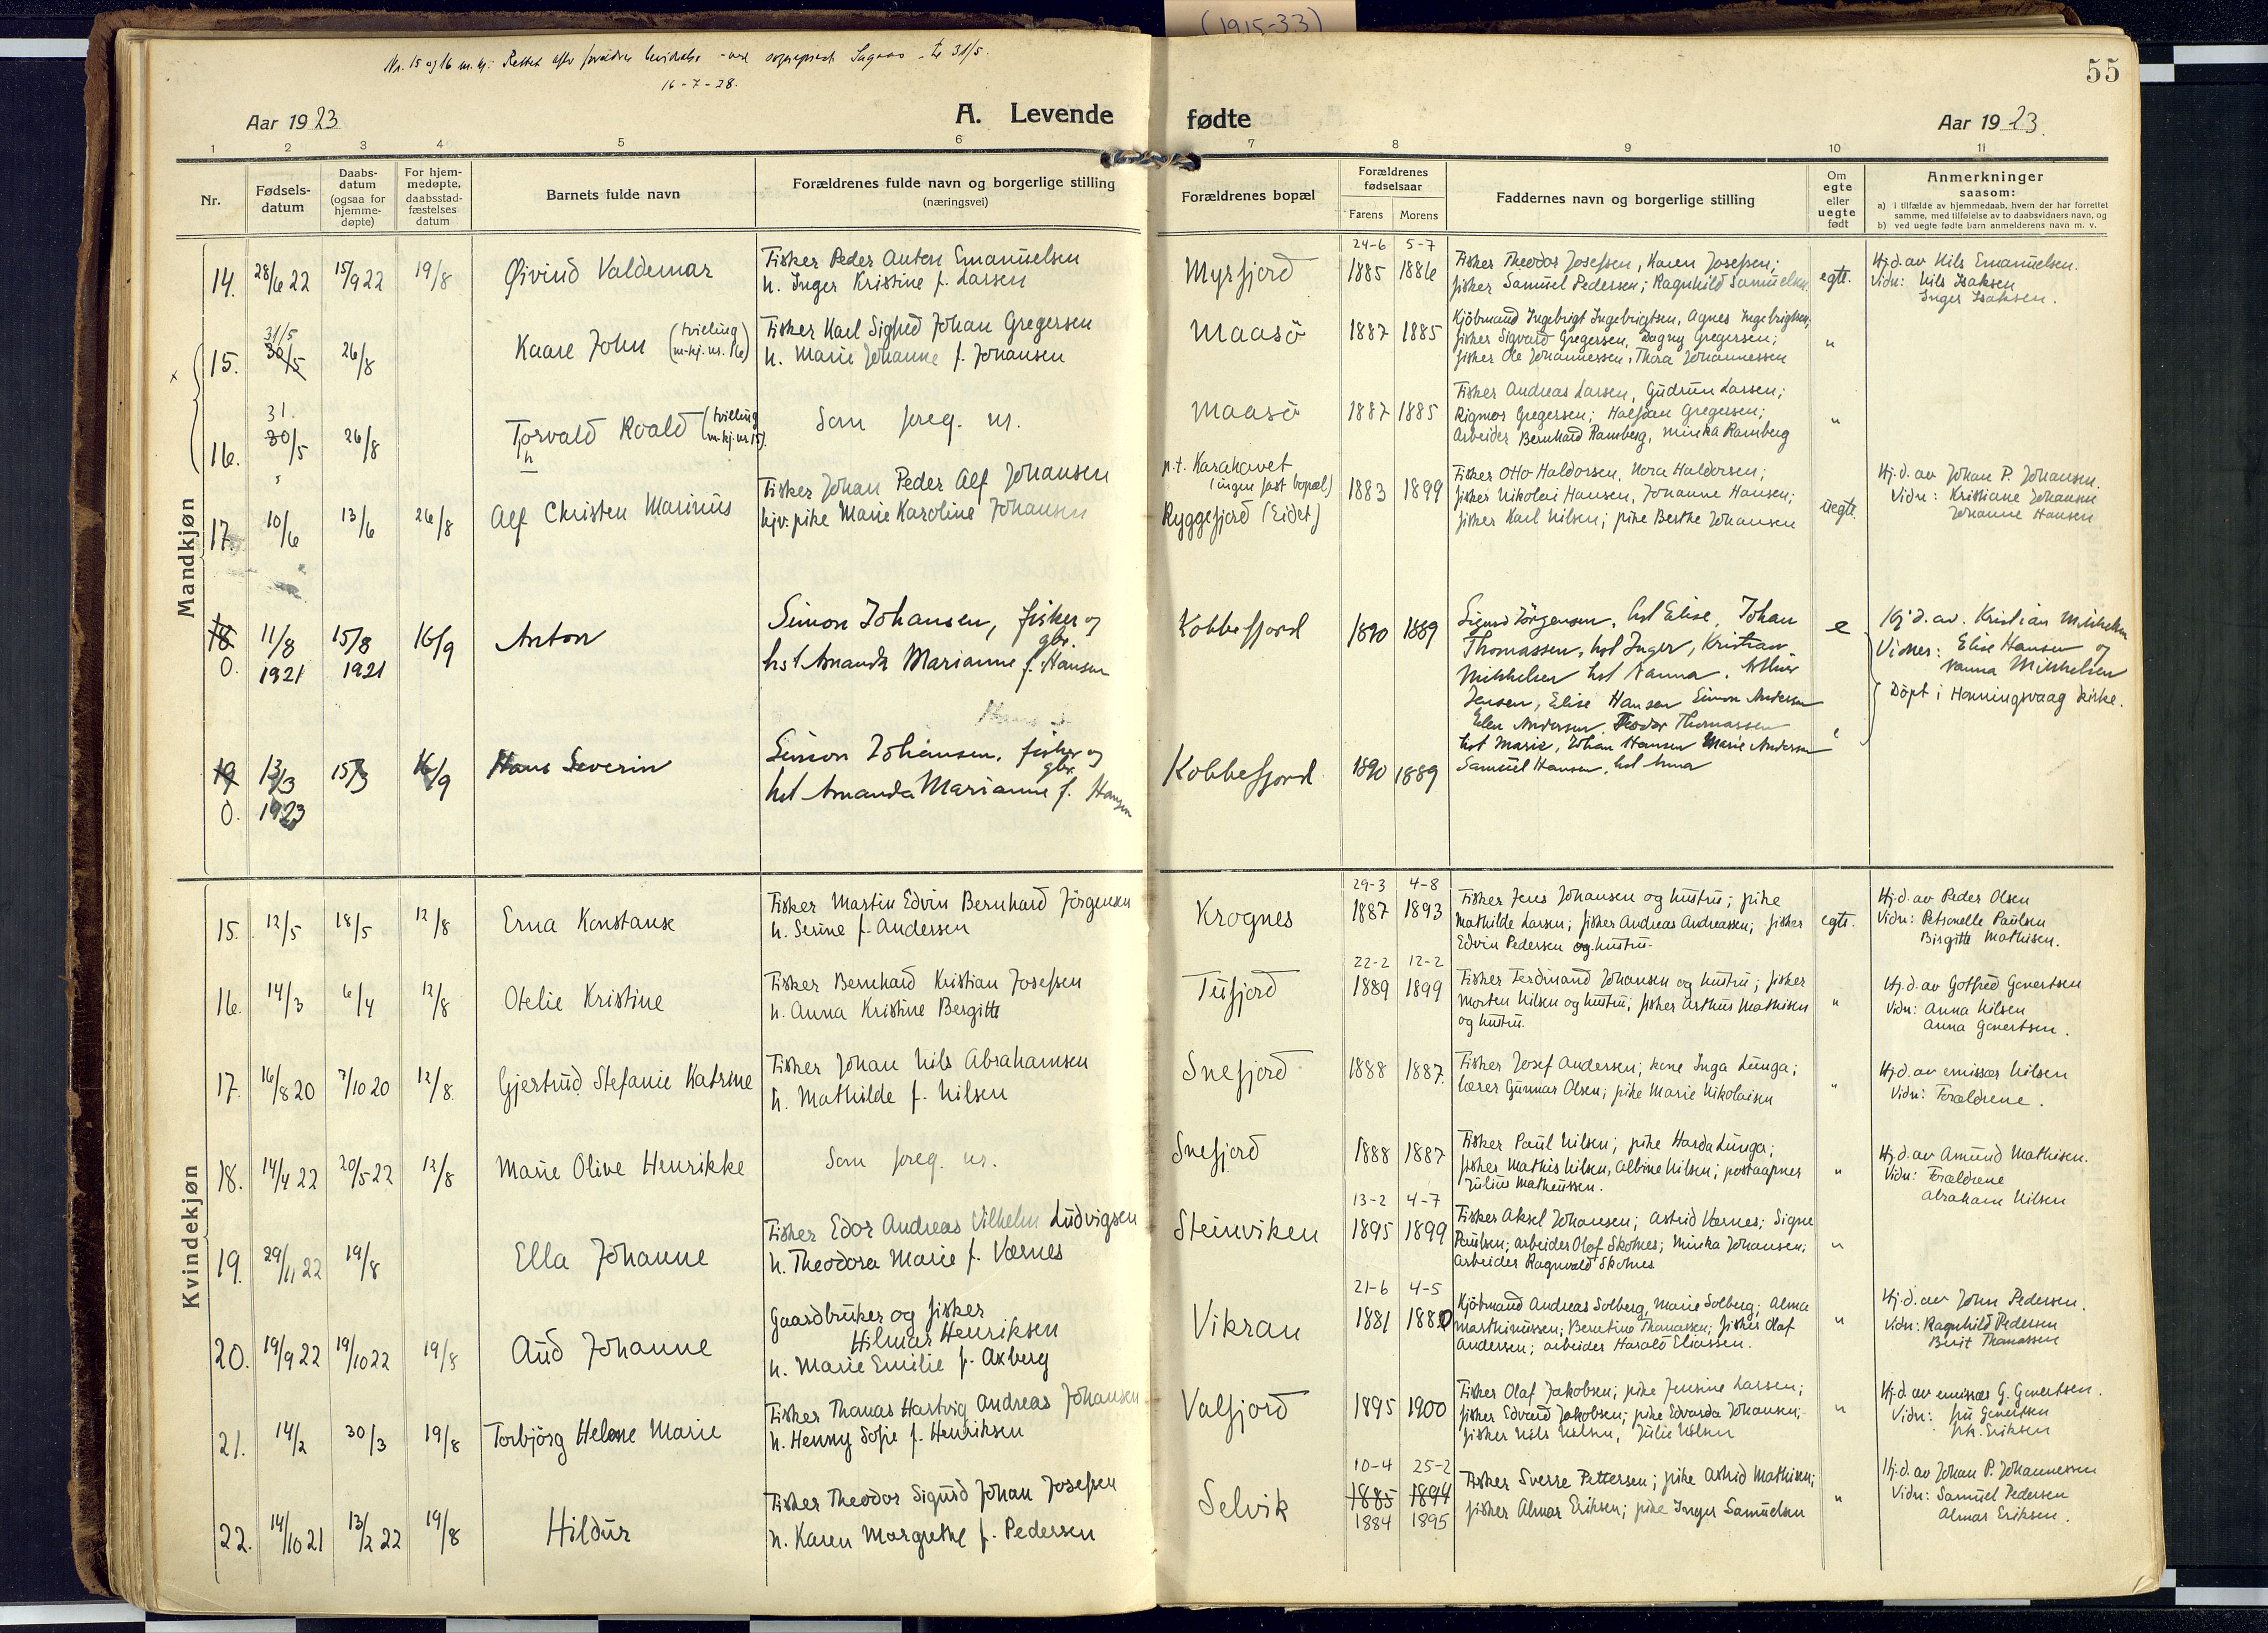 (1915-33)
55
Nr. 15 og 16 m.kj: Rettet efter
16-7-28.
Aar 1923
A. Levende
fødte
Aar 1923.
1 2 3 4 5 6 7 8 9 10 11
Nr.
Fødsels-
datum
Daabs-
datum
(ogsaa for
hjemme-
døpte)
For hjem-
medøpte,
daabsstad-
fæstelses
datum
Barnets fulde navn
Forældrenes fulde navn og borgerlige stilling
(næringsvei)
Forældrenes bopæl
Forældrenes
fødselsaar
Farens Morens
Faddernes navn og borgerlige stilling
Om
egte
eller
uegte
født
Anmerkninger
saasom:
a) i tilfælde av hjemmedaab, hvem der har forrettet
samme, med tilføielse av to daabsvidners navn, og
b) ved uegte fødte barn anmelderens navn m. v.
Mandkjøn
14. 28/6 22 15/9 22 19/8 Øivind Valdemar
Fisker Peder Anton Emanuelsen
h. Inger Kristine f. Larsen
Myrfjord
24-6 5-7
1885 1886
Fisker Theodor Josefsen, Karen Josefsen;
fisker Samuel Pedersen; Ragnhild Samuelsen.
egte.
Hj.d. av Nils Emanuelsen.
Vidn: Nils Isaksen
Inger Isaksen.
x
15. 31/5 30/5 26/8 Kaare John (tvilling
m. kj. nr. 16)
Fisker Karl Sigfred Johan Gregersen
h. Marie Johanne f. Johansen
Maasö
1887 1885
Kjöbmand Ingebrigt Ingebrigtsen, Agnes Ingebrigtsen;
fisker Sigvard Gregersen, Dagny Gregersen;
fisker Ole Johannessen, Thora Johannessen
"
16. 31. 30/5 26/8 Torvald Roald (tvilling
m. kj. nr. 15).
h
Som foreg. nr.
Maasö
1887 1885
Fisker Andreas Larsen, Gudrun Larsen;
Rigmor Gregersen; Halfdan Gregersen;
Arbeider Bernhard Ramberg, Minka Ramberg
"
17. 10/6 13/6 26/8 Alf Christen Marinius
Fisker Johan Peder Alf Johansen
hjv. pike Marie Karoline Johansen
p.t. Karahavet
(ingen fast bopæl)
Ryggefjord (Eidet)
1883 1899
Fisker Otto Haldorsen, Nora Haldorsen;
fisker Nikolai Hansen, Johanne Hansen;
fisker Karl Nilsen; pike Berthe Johansen
uegte.
Hj.d. av Johan P. Johansen.
Vidn: Kristiane Johansen
Johanne Hansen
18 0. 11/8 1921 15/8 1921 16/9 Anton
Simon Johansen, fisker og
gbr.
hst Amanda Marianne f. Hansen
Kobbefjord
1890 1889
Sigurd Jörgensen, hst Elise, Johan
Thomassen, hst Inger, Kristian
Mikkelsen hst Nanna.
Jensen, Elise Hansen Simon Andersen
e
Hj.d. av. Kristian Mikkelsen
Vidner: Elise Hansen og
Nanna Mikkelsen
Döpt i Honningsvaag kirke.
19 0. 13/3 1923 15/3 16/9 Hans Severin
Simon Johansen, fisker og
gbr.
hst Amanda Marianne f. Hansen
Kobbefjord
1890 1889
Elen Andersen, Teodor Thomassen
hst Marie, Johan Hansen Marie Andersen
Samuel Hansen, hst Anna
Kvindekjøn
15. 12/5 18/5 12/8 Erna Konstanse
Fisker Martin Edvin Bernhard Jörgensen
h. Serine f. Andersen
Krognes
29-3 4-8
1887 1893
Fisker Jens Johansen og hustru; pike
Mathilde Larsen; fisker Andreas Andreassen; fisker
Edvin Pedersen og hustru.
egte.
Hj.d. av Peder Olsen
Vidn: Petronelle Paulsen
Birgitte Mathisen.
16. 14/3 6/4 12/8 Otelie Kristine
Fisker Bernhard Kristian Josefsen
h. Anna Kristine Bergitte
Tufjord
22-2 12-2
1889 1899
Fisker Ferdinand Johansen og hustru; fisker
Morten Nilsen og hustru; fisker Arthur Mathisen
og hustru.
"
Hj.d. av Gotfred Gevertsen
Vidn: Anna Nilsen
Anna Gevertsen.
17. 16/8 20 7/10 20 12/8 Gjertrud Stefanie Katrine
Fisker Johan Nils Abrahamsen
h. Mathilde f. Nilsen
Snefjord
1888 1887.
Fisker Josef Andersen; kone Inga Lunga;
lærer Gunnar Olsen; pike Marie Nikolaisen
"
Hj.d. av emissær Nilsen
Vidn: Forældrene.
18. 14/4 22 20/5 22 12/8 Marie Olive Henrikke
Som foreg. nr.
Snefjord
1888 1887
Fisker Paul Nilsen; pike Harda Lunga;
fisker Mathis Nilsen, Albine Nilsen; postaapner
Julius Matheussen.
"
Hj.d. av Amund Mathisen.
Vidn: Forældrene
Abraham Nilsen
19. 29/11 22 19/8 Ella Johanne
Fisker Edor Andreas Vilhelm Ludvigsen
h. Theodora Marie f. Værnes
Steinviken
13-2 4-7
1895 1899
Fisker Aksel Johansen; Astrid Værnes; Signe
Paulsen; arbeider Olaf Skotnes; Minka Johansen;
arbeider Ragnvald Skotnes
"
20. 19/9 22 19/10 22 19/8 Aud Johanne
Gaardbruker og fisker
Hilmar Henriksen
h. Marie Emilie f. Axberg
Vikran
21-6 4-5
1881 1880
Kjöbmand Andreas Solberg, Marie Solberg; Alma
Marthinussen; Berntine Thomassen; fisker Olaf
Andersen; arbeider Harald Eliassen.
"
Hj.d. av John Pedersen.
Vidn: Ragnhild Pedersen
Berit Thomassen
21. 14/2 30/3 19/8 Torbjörg Helene Marie
Fisker Thomas Hartvig Andreas Johansen
h. Henny Sofie f. Henriksen
Valfjord
1895 1900
Fisker Olaf Jakobsen; pike Jensine Larsen;
fisker Edvard Jakobsen; pike Edvarda Johansen;
fisker Nils Nilsen, Julie Nilsen
"
Hj.d. av emissær G. Gevertsen.
Vidn: fru Gevertsen
frk. Eriksen
22. 14/10 21 13/2 22 19/8 Hildur
Fisker Theodor Sigurd Johan Josefsen
h. Karen Margrethe f. Pedersen
Selvik
10-4 25-2
1885 1894
1884 1895
Fisker Sverre Pettersen; pike Astrid Mathisen;
fisker Almar Eriksen; pike Inger Samuelsen
"
Hj.d. av Johan P. Johannessen
Vidn: Samuel Pedersen
Almar Eriksen.